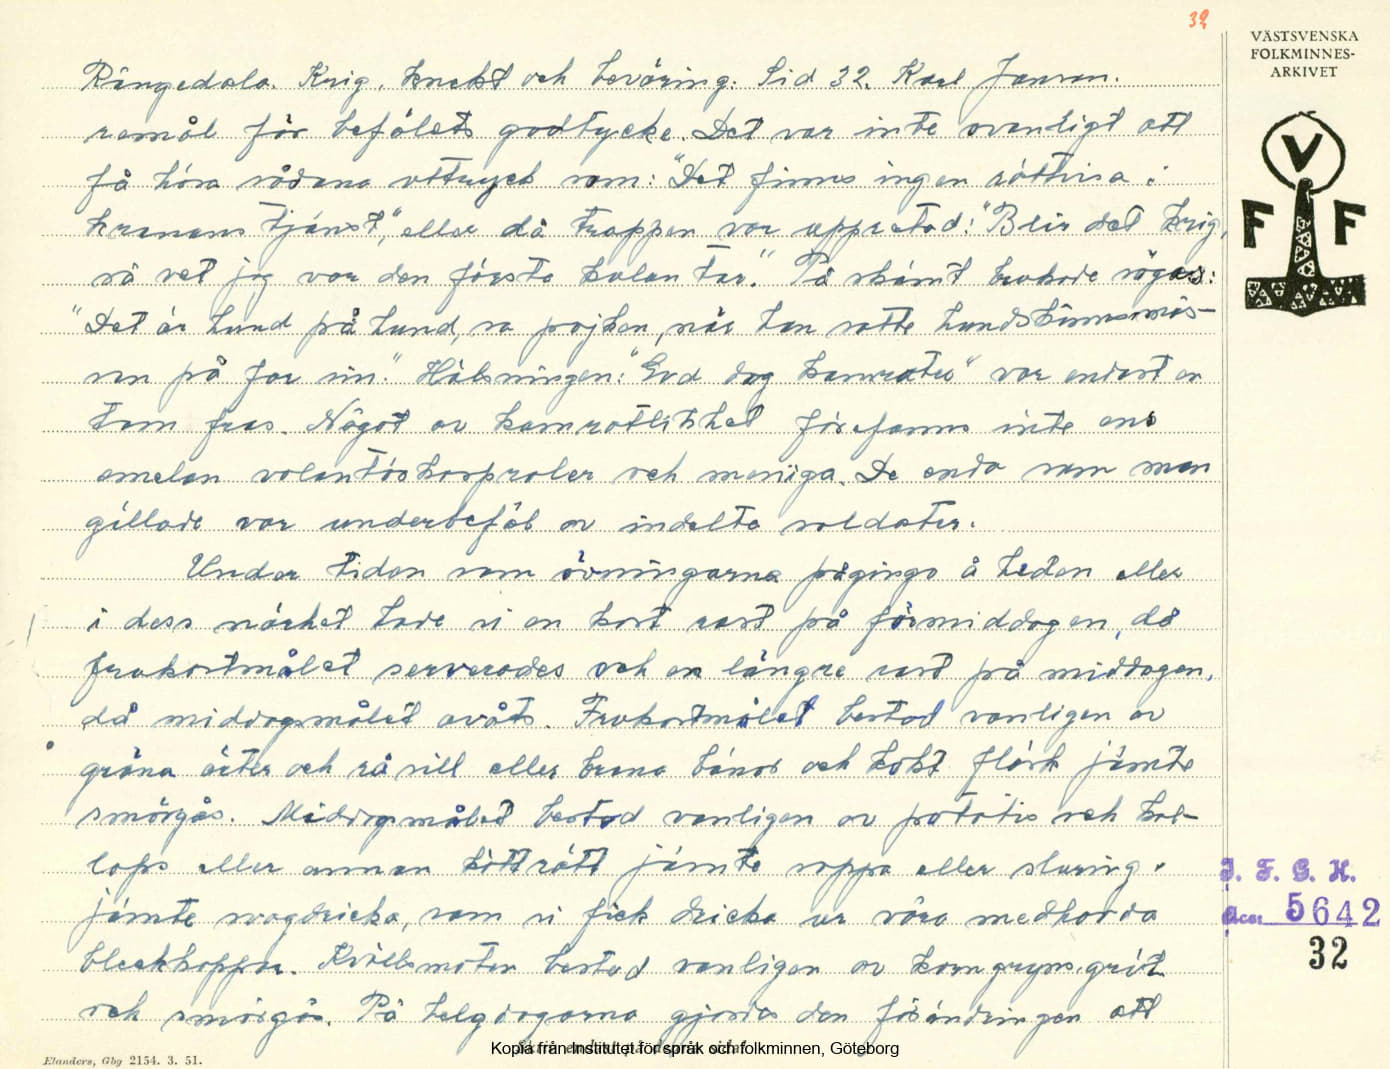 39
VÄSTSVENSKA
FOLKMINNES-
ARKIVET
V
F F
Rångedala. Krig, knekt och beväring. Sid 32. Karl Janson.
remål för befälets godtycke. Det var inte ovanligt att
få höra sådana uttryck som: "Det finns ingen rättvisa i
kronans tjänst", eller då truppen var uppretad: "Blir det krig,
så vet jag var den första kulan tar." På skämt brukade sägas:
"Det är hund på hund, sa pojken, när han satte hundskinnsmös-
san på far sin." Hälsningen: "God dag kamrater" var endast en
tom fras. Något av kamratlikhet förefanns inte ens
emelan volontärkorpraler och meniga. De enda som man
gillade var underbefäl av indelta soldater.
Under tiden som övningarna pågingo å heden eller
i dess närhet hade vi en kort rast på förmiddagen, då
frukostmålet serverades och en längre rast på middagen,
då middagsmålet avåts. Frukostmålet bestod vanligen av
gröna ärter och rå sill eller bruna bönor och kokt fläsk jämte
smörgås. Middagsmålet bestod vanligen av potatis och kal-
lops eller annan kötträtt jämte soppa eller sluring.
jämte svagdricka, som vi fick dricka ur våra medhavda
bleckkoppar. Kvällsmaten bestod vanligen av korngrynsgröt
och smörgås. På helgdagarna gjordes den förändringen att
I. F. G. H.
Acc. 5642
32
Elanders, Gbg 2154. 3. 51.
Kopia från Institutet för språk och folkminnen, Göteborg